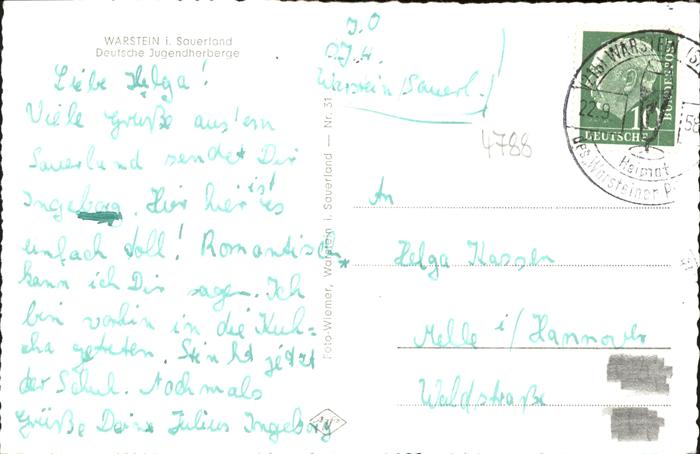 WARSTEIN i. Sauerland
Deutsche Jugendherberge
Liebe Helga!
Viele Grüße aus'em
Sauerland sendet Dir
Ingeborg. Hier hier ist es
einfach toll! Romantisch
kann ich Dir sagen. Ich
bin vorhin in die Kuh=
cha getreten. Stinkt jetzt
der Schuh. Nochmals
Grüße Deine Julius Ingeborg
Foto-Wiemer, Warstein i. Sauerland — Nr. 31
z.Z.
D.J.H.
Warstein/Sauerl.
4788
An
Helga Kassen
Melle i/Hannover
Waldstraße
WARSTEIN
22.9
58
Heimat
des Warsteiner
10
DEUTSCHE
BUNDESPOST